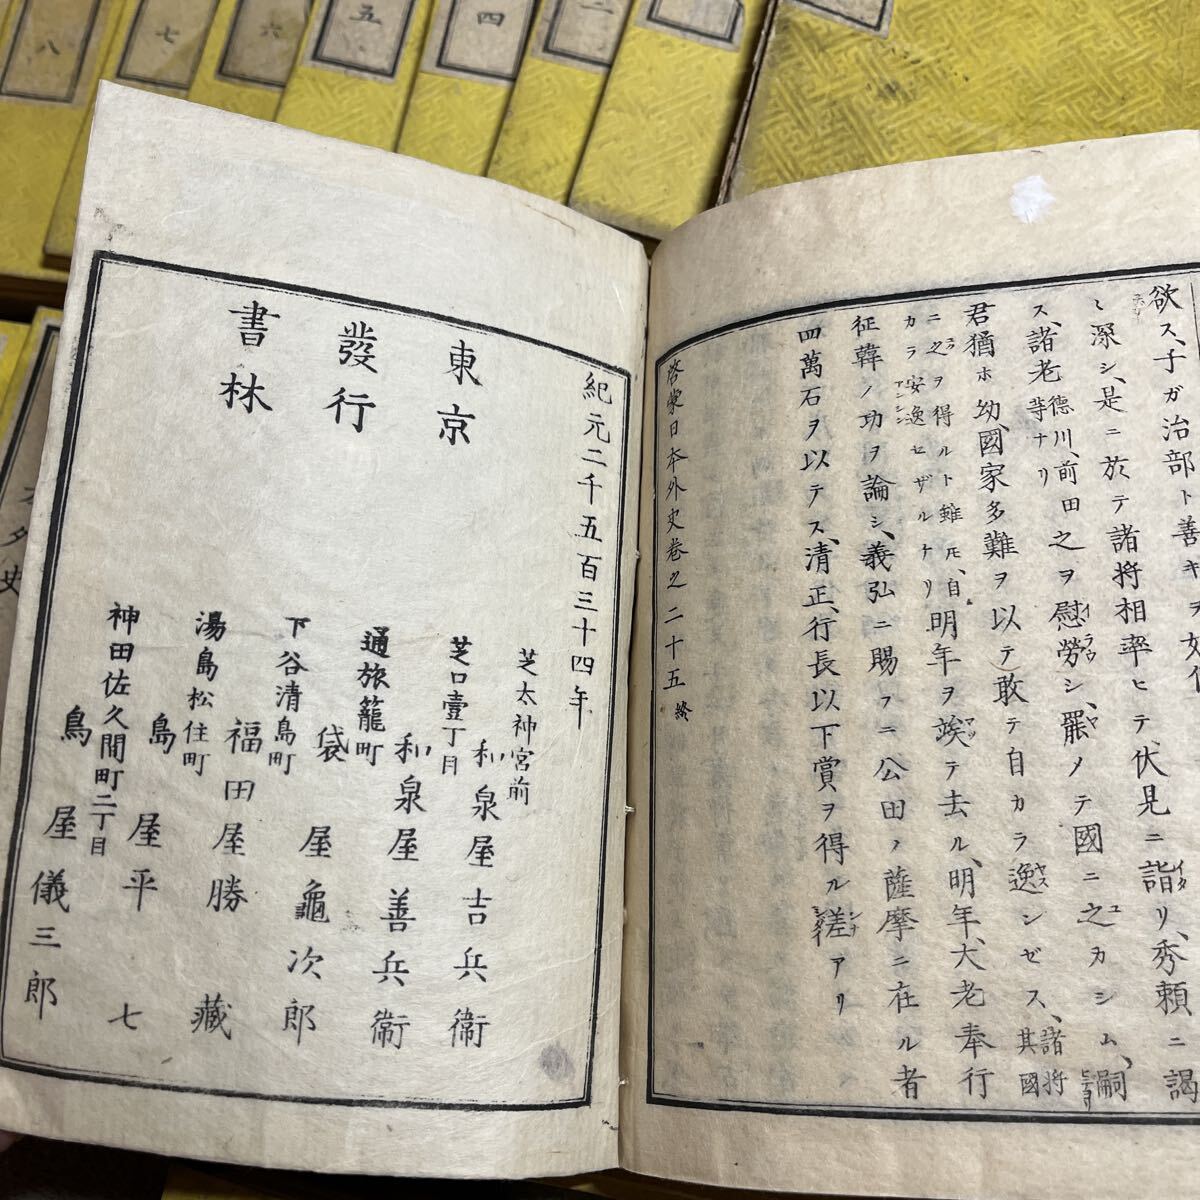 欲ス、子ガ治部ト善キヲ
ミ深シ、是ニ於テ諸将相率ヒテ、伏見ニ詣リ、秀頼ニ謁
ス、諸老德川、前田等ナリ之ヲ慰勞シ、罷ノテ國ニ之カシム、嗣
君猶ホ幼、國家多難ヲ以テ敢テ自カラ逸ンゼス、諸将其國
ニ之ヲ得ルト雖𪜈、自カラ安逸セザルナリ明年ヲ竢テ去ル、明年、大老奉行
征韓ノ功ヲ論シ、義弘ニ賜フニ公田ノ薩摩ニ在ル者
四萬石ヲ以テス、清正、行長以下賞ヲ得ル差アリ
啓蒙日本外史卷之二十五終
紀元二千五百三十四年
東京
發行
書林
芝太神宮前
和泉屋吉兵衞
芝口壹丁目
和泉屋善兵衞
通旅籠町
袋屋龜次郎
下谷清島町
福田屋勝藏
湯島松住町
島屋平七
神田佐久間町二丁目
鳥屋儀三郎
八
七
六
五
四
二